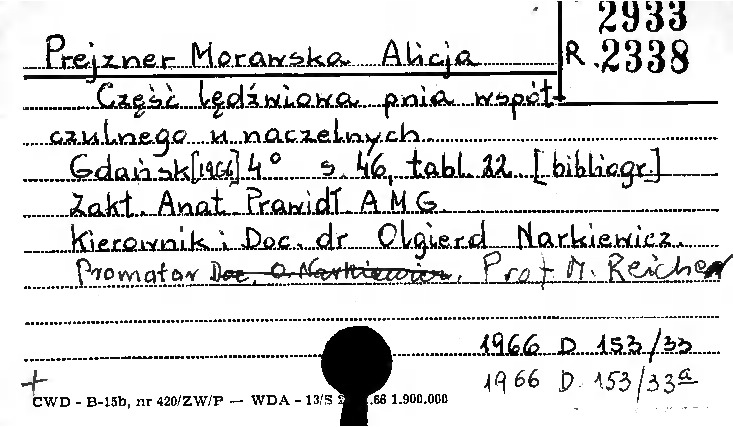 2933
R. 2338
Prejzner Morawska Alicja
Część lędźwiowa pnia współ-
czulnego u naczelnych.
Gdańsk [1966] 4° s. 46, tabl. 22 [bibliogr.]
Zakł. Anat. Prawidł. A M G.
Kierownik: Doc. dr Olgierd Narkiewicz.
Promotor Doc. O. Narkiewicz, Prof M. Reicher
1966 D 153/33
1966 D. 153/33a
+
CWD - B-15b, nr 420/ZW/P — WDA - 13/S .66 1.900.000